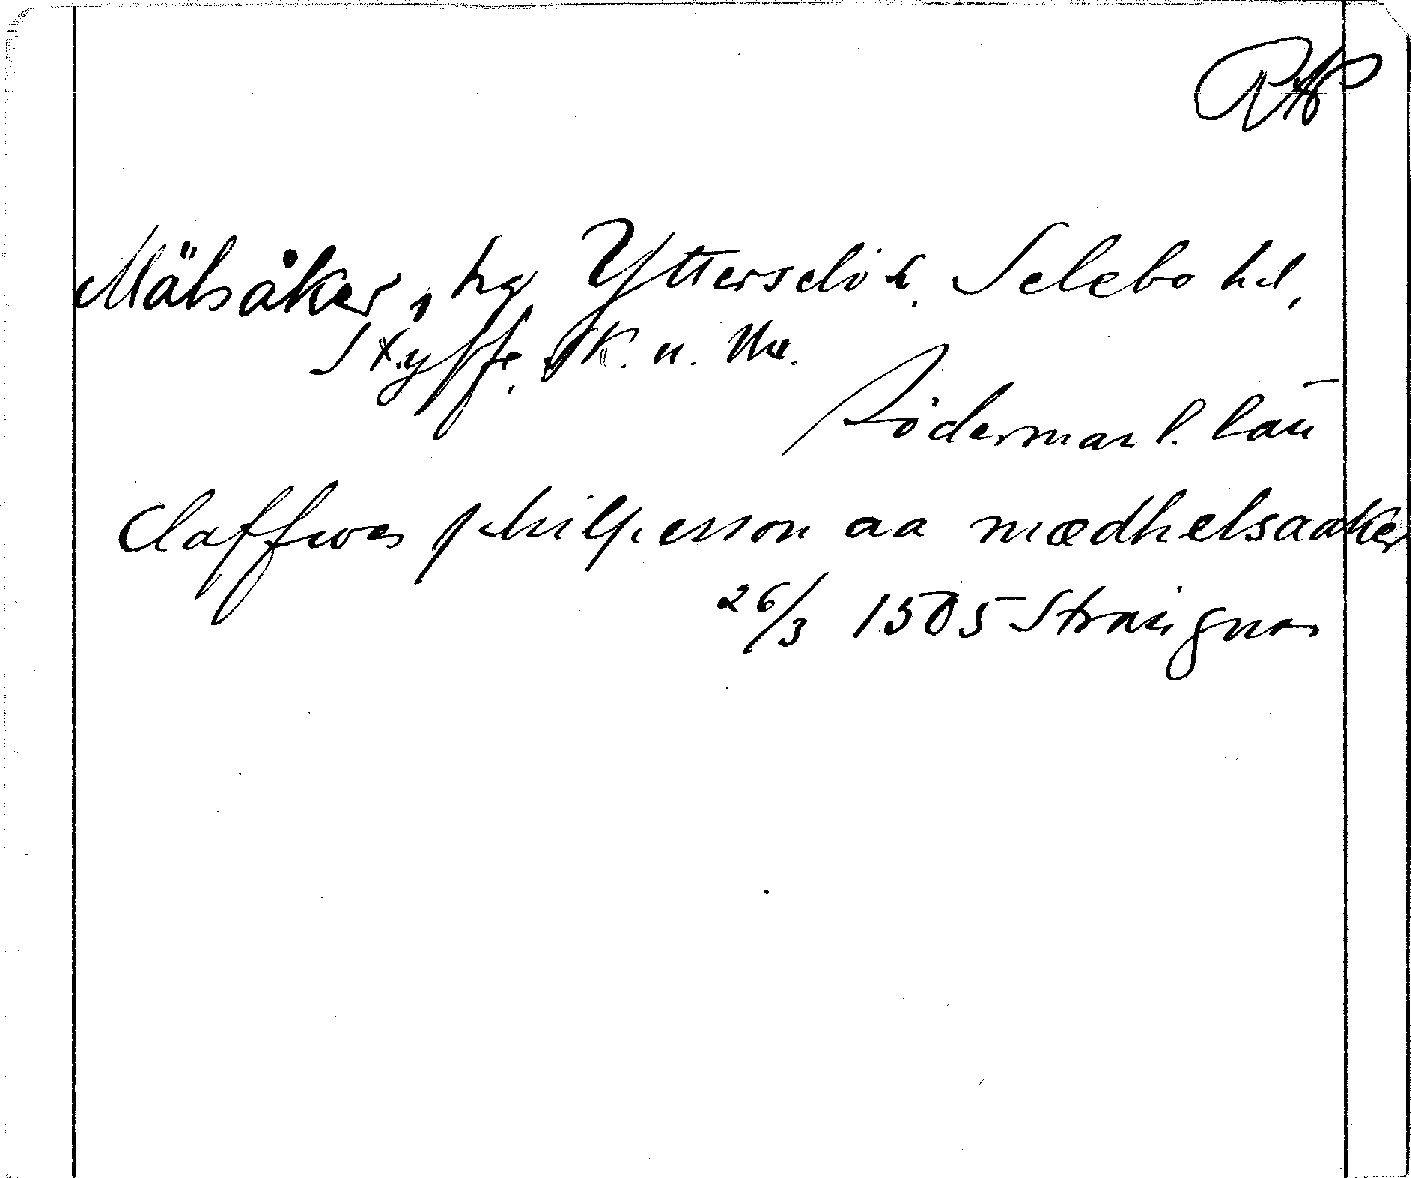 RAP
Mälsåker, hg Ytterselö sn. Selebo hd,
Skyffe, K. u. Me.
Södermanl. län
Claffwes philpesson aa mædhelsaaker
26/3 1505 Strængnæs